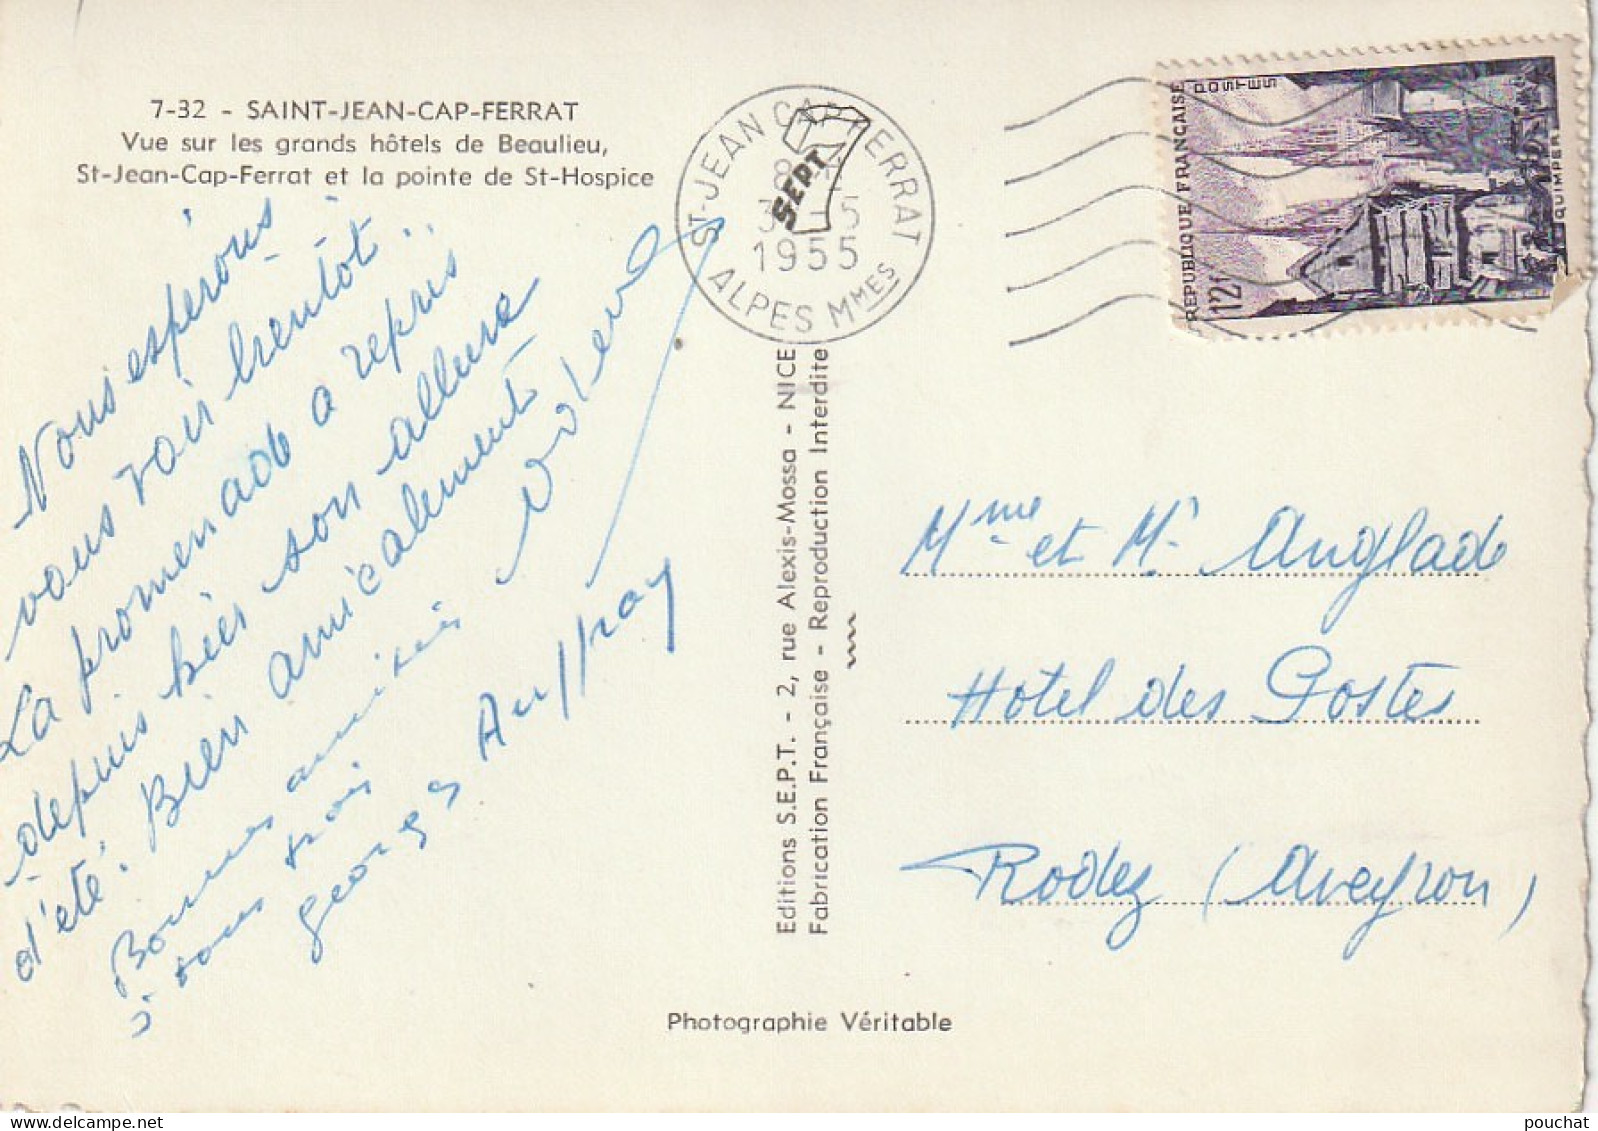 7-32 - SAINT-JEAN-CAP-FERRAT
Vue sur les grands hôtels de Beaulieu,
St-Jean-Cap-Ferrat et la pointe de St-Hospice
Nous espérons
vous voir bientôt.
La promenade a repris
depuis hier son allure
d'été. Bien amicalement
Bonnes amitiés
à tous trois
Georges Auffray
ST-JEAN CAP FERRAT
1955
ALPES Mmes
SEPT
REPUBLIQUE FRANÇAISE
POSTES
12f
QUIMPER
Editions S.E.P.T. - 2, rue Alexis-Mossa - NICE
Fabrication Française - Reproduction Interdite
Mme et Mr Anglade
Hotel des Postes
Rodez (Aveyron)
Photographie Véritable
pouchat